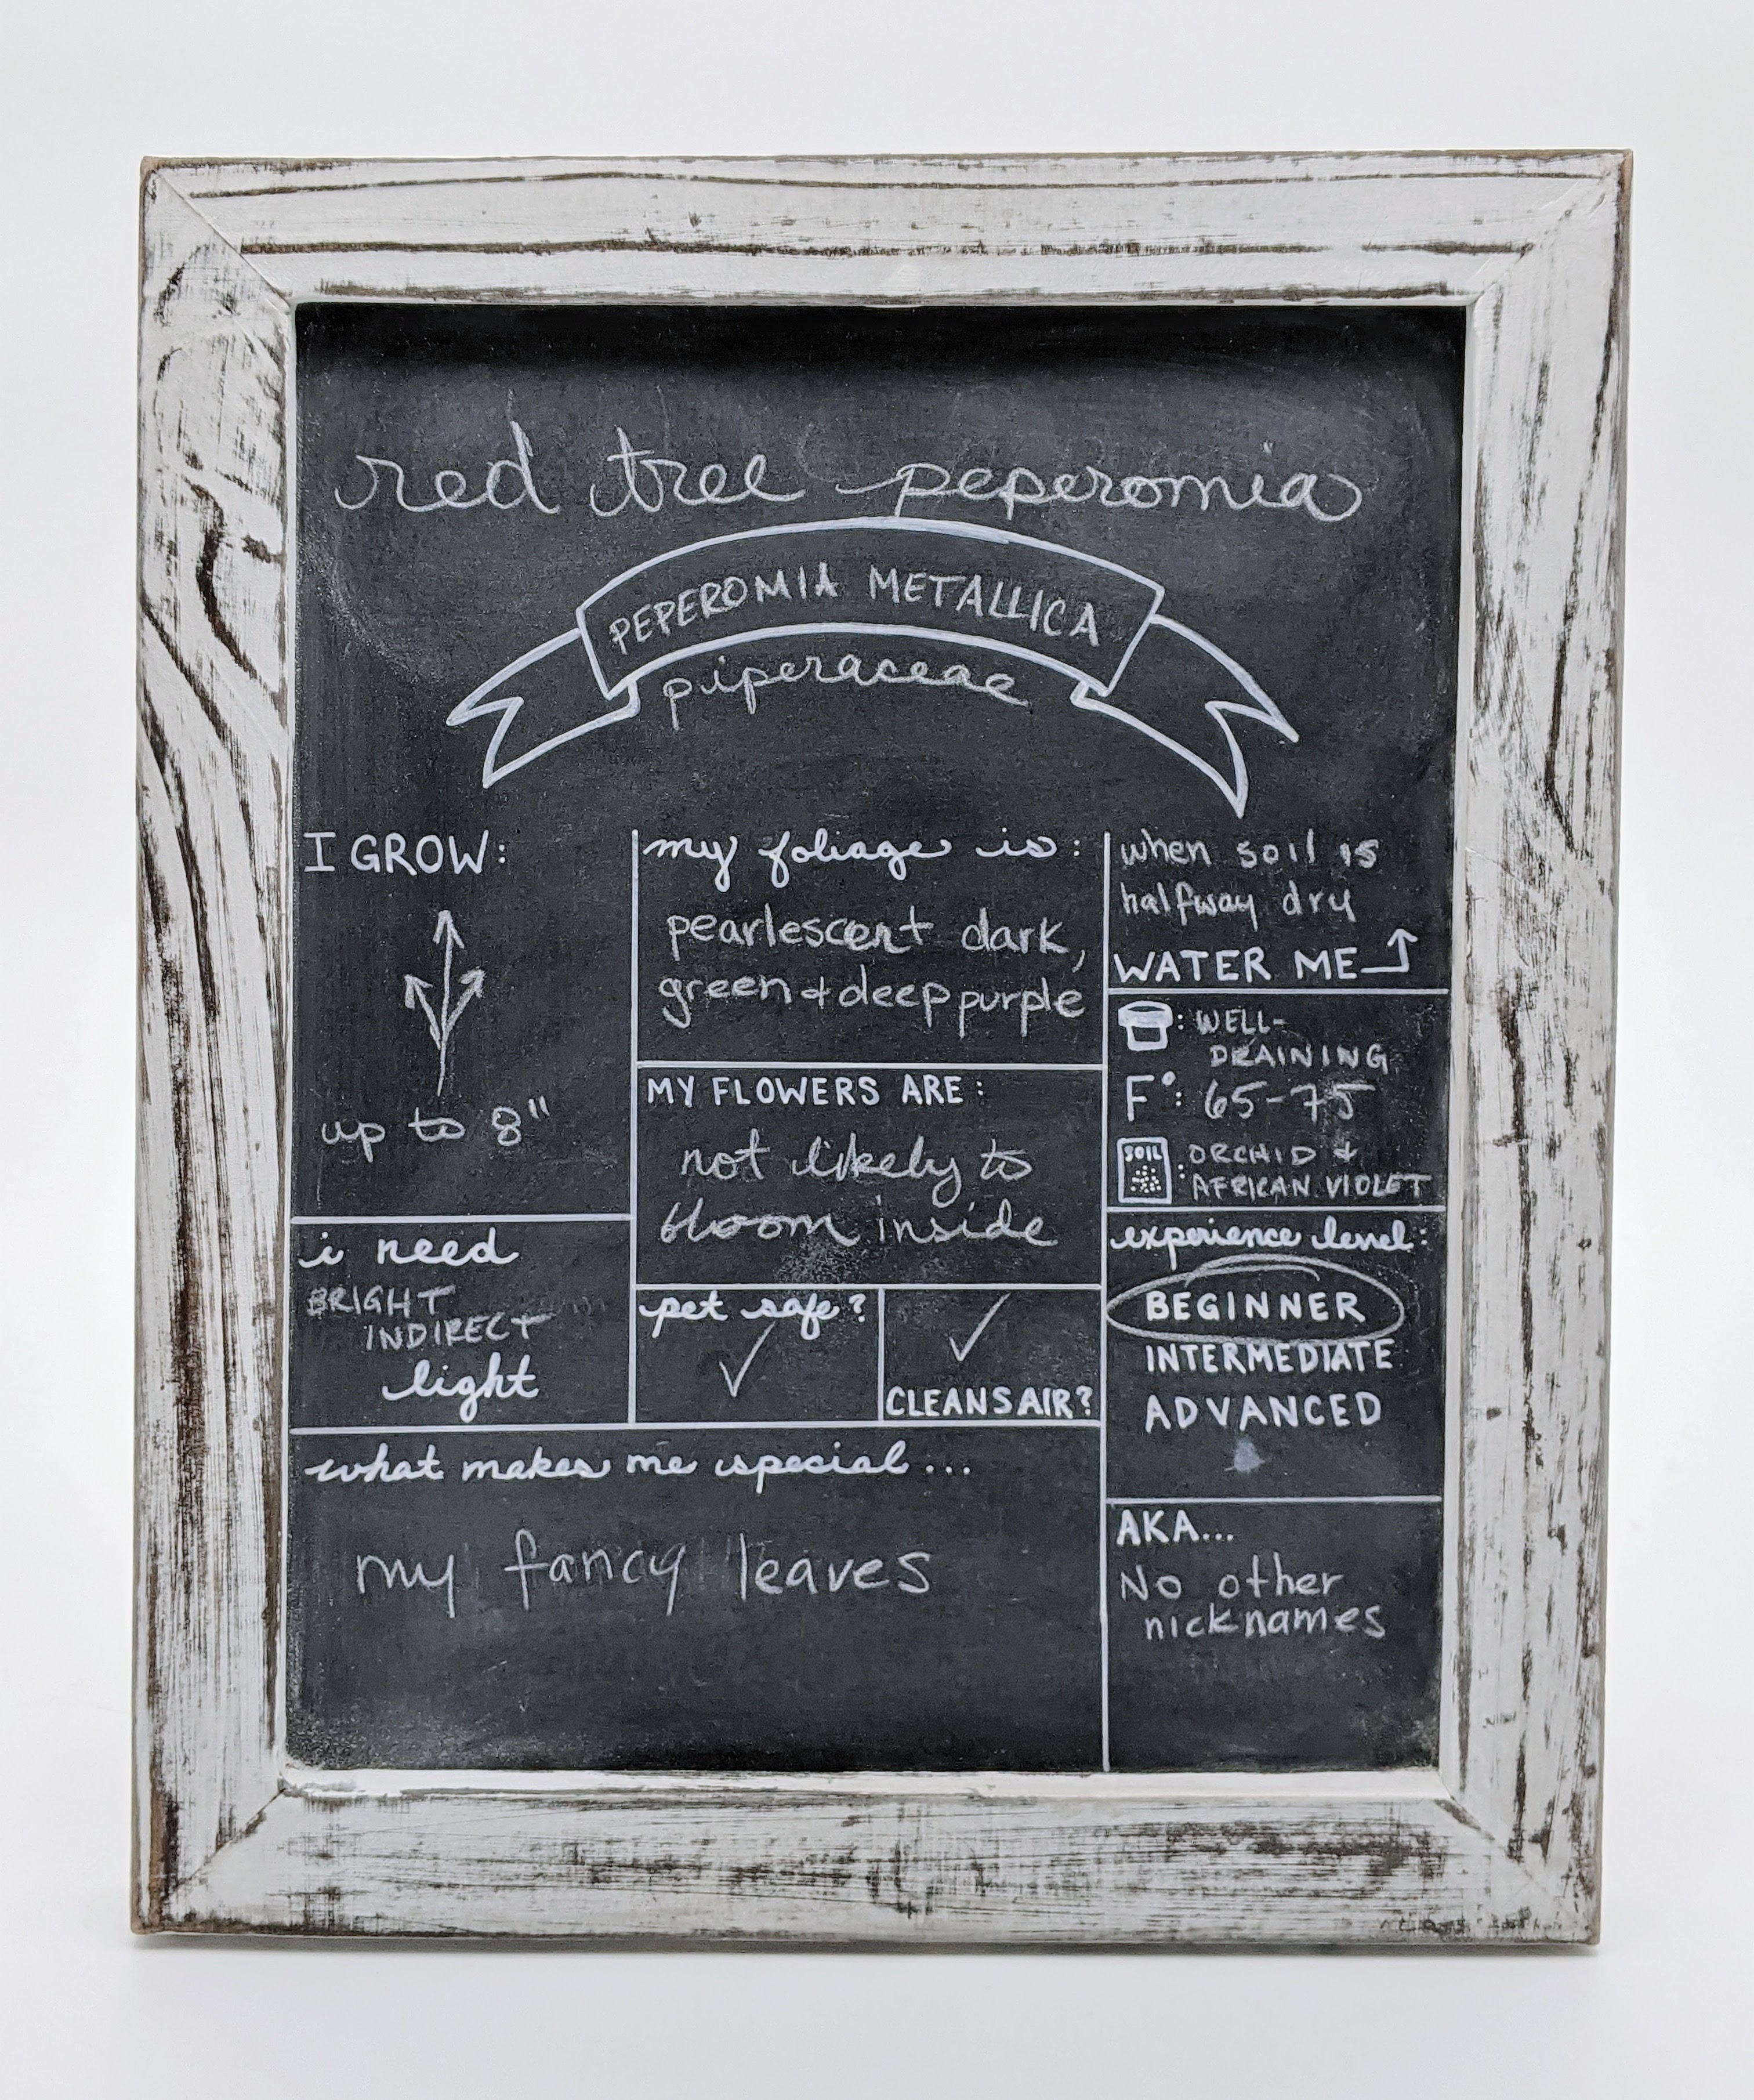 red tree peperomia
PEPEROMIA METALLICA
piperaceae
I GROW:
up to 8"
i need
BRIGHT
INDIRECT
light
my foliage is:
pearlescent dark,
green + deep purple
MY FLOWERS ARE:
not likely to
bloom inside
pet safe?
✓
✓
CLEANS AIR?
what makes me special...
my fancy leaves
when soil is
halfway dry
WATER ME
: WELL-
DRAINING
F°: 65-75
SOIL : ORCHID +
AFRICAN VIOLET
experience level:
BEGINNER
INTERMEDIATE
ADVANCED
AKA...
No other
nicknames